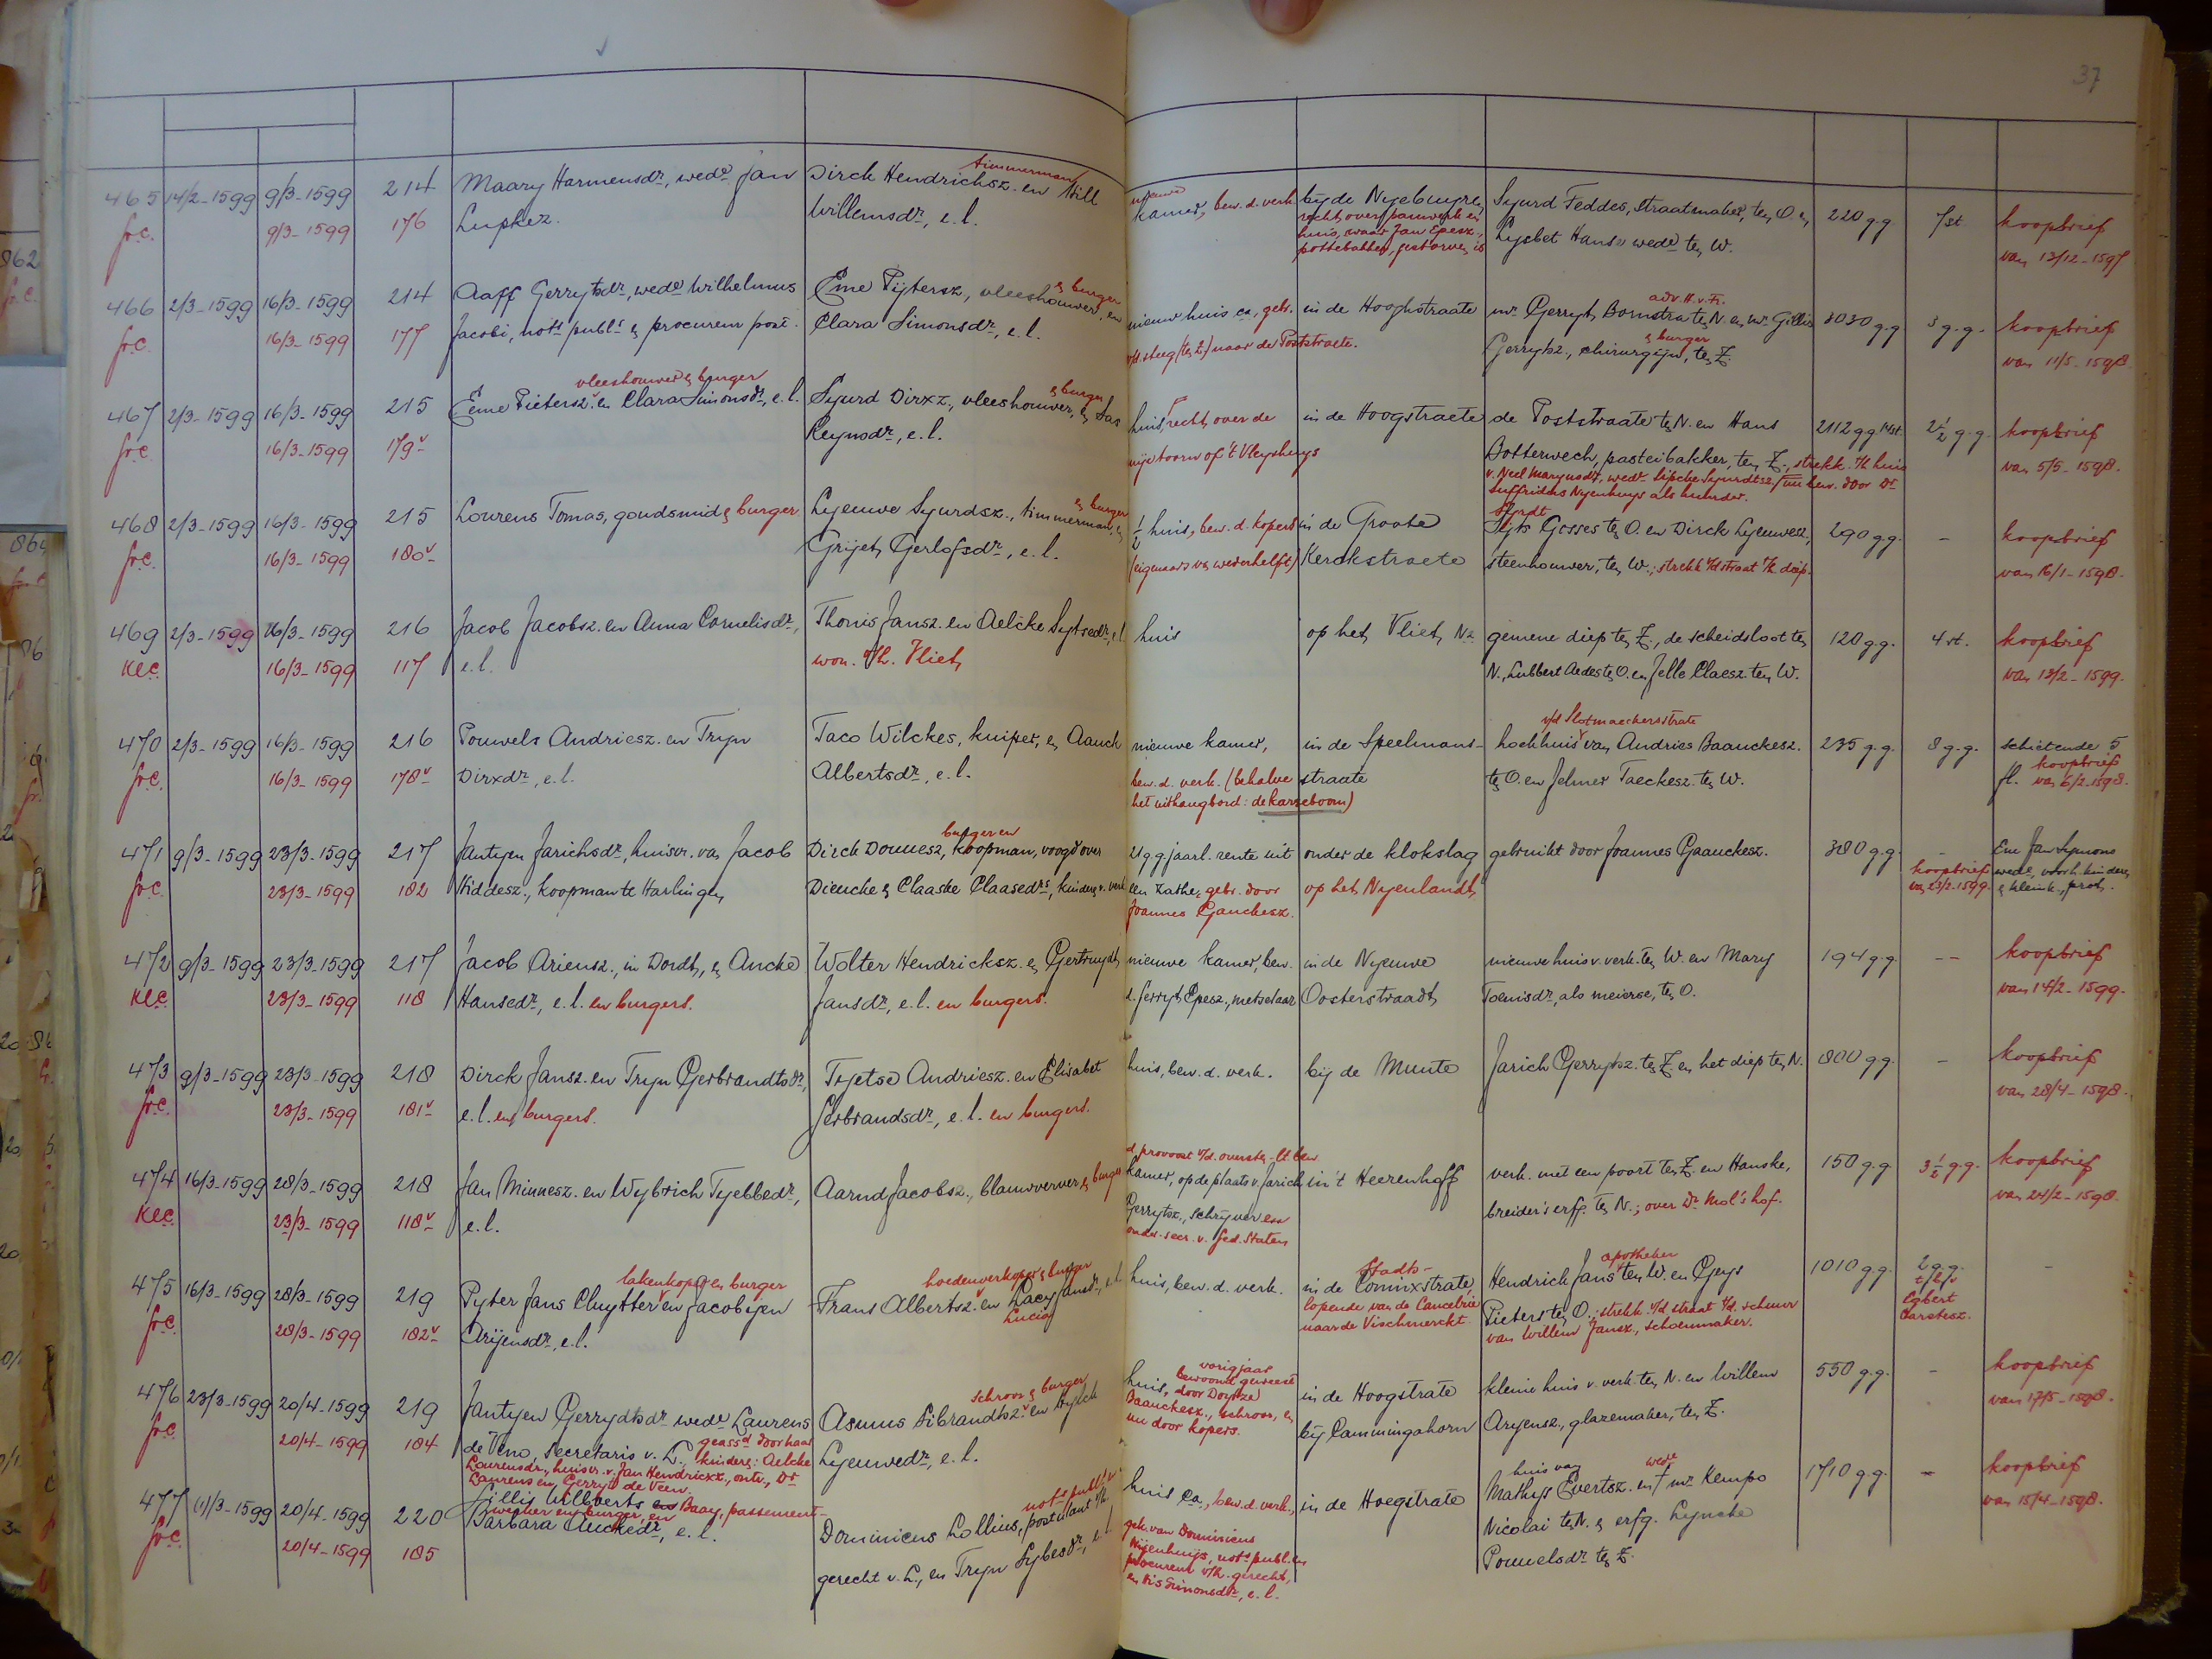 37
465 14/2-1599 9/3-1599 214 Maary Harmensdr, wede Jan Dirck Hendrichsz. en timmerman Will nieuwe kamer, bew. d. verk. bij de Nyebuyren Syurd Feddes, straatmaker, ten O. en 220 g.g. 7 st. koopbrief
fr.c. 9/3-1599 176 Lupkez. Willemsdr, e.l. recht over panwerk en huis, waar Jan Epesz., pottebakker, gestorven is Lysbet Hans wede ten W. van 13/12-1597
466 2/3-1599 16/3-1599 214 Aaff Gerrytsdr, wede Wilhelmus Eme Pytersz, vleeshouwer & burger, en nieuw huis ca, gebr. in de Hooghstraate mr Gerryt Bornstra adv. H.v.Fr. ten N. en mr Gillis 3030 g.g. 3 g.g. koopbrief
fr.c. 16/3-1599 177 Jacobi, nots publs & procureur post. Clara Simonsdr, e.l. v/d. steeg (ten Z.) naar de Poststraete. Gerrytsz., chirurgijn & burger, ten Z. van 11/5-1598
467 2/3-1599 16/3-1599 215 Eeme Pietersz. vleeshouwer & burger en Clara Simonsdr, e.l. Syurd Dirxz., vleeshouwer, & burger & Sas huis, recht over de in de Hoogstraete de Poststraate ten N. en Hans 2112 g.g. 14 st. 2½ g.g. koopbrief
fr.c. 16/3-1599 179v Reynsdr, e.l. nije toorn of 't Vleyshuys Botterwech, pasteibakker, ten Z., strekk. t/h huis van 5/5-1598.
v. Neel Marynsdr, wedr Sipcke Syurdtsz / nu bew. door Dr
Suffridus Nyenhuys als huurder.
468 2/3-1599 16/3-1599 215 Lourens Tomas, goudsmid & burger Lyeuwe Syurdsz., timmerman, & burger & ½ huis, bew. d. kopers in de Groote Syts Gosses ten O. en Dirck Lyeuwesz, 290 g.g. - koopbrief
fr.c. 16/3-1599 180v Grijet Gerlofsdr, e.l. (eigenaars van wederhelft) Kerckstraete steenhouwer, ten W.; strekk. v/d straat t/h. diep. van 16/1-1598.
469 2/3-1599 16/3-1599 216 Jacob Jacobsz. en Anna Cornelisdr, Thonis Jansz. en Aelcke Sytsedr, e.l. huis op het Vliet Nz. gemene diep ten Z., de scheidsloot ten 120 g.g. 4 st. koopbrief
Kl.c. 16/3-1599 117 e.l. won. o/h. Vliet N., Lubbert Aedes ten O. en Jelle Claesz. ten W. van 13/2-1599.
470 2/3-1599 16/3-1599 216 Pouwels Andriesz. en Tryn Taco Wilckes, kuiper, en Aauck nieuwe kamer, in de Speelmans- hoekhuis v/d Slotmaeckersstrate van Andries Baanckesz. 235 g.g. 8 g.g. schietende 5
fr.c. 16/3-1599 178v Dirxdr, e.l. Albertsdr, e.l. bew. d. verk. (behalve het uithangbord: de karseboom) straate ten O. en Jelmer Taeckesz. ten W. fl. koopbrief van 6/2-1598.
471 9/3-1599 23/3-1599 217 Jantyen Jarichsdr, huisvr. van Jacob Dirck Douuesz, burger en koopman, voogd over 21 g.g. jaarl. rente uit onder de klokslag gebruikt door Joannes Gaauckesz. 380 g.g. - Eme Jan Symons
fr.c. 23/3-1599 182 Hiddesz., koopman te Harlingen Dieucke & Claaske Claasedrs, kinders v. verk. een zathe, gebr. door Joannes Gauckesz. op het Nyenlandt koopbrief van 23/2-1599. wede, voorh. kinderen & kleink., prot.
472 9/3-1599 23/3-1599 217 Jacob Ariensz., in Dordt, & Ancke Wolter Hendricksz. & Gertruydt nieuwe kamer, bew. in de Nyeuwe nieuwe huis v. verk. ten W. en Mary 194 g.g. -- koopbrief
Kl.c. 23/3-1599 118 Hansedr, e.l. en burgers. Jansdr, e.l. en burgers. d. Gerryt Epesz., metselaar Oosterstraadt Toenisdr, als meierse, ten O. van 14/2-1599.
473 9/3-1599 23/3-1599 218 Dirck Jansz. en Tryn Gerbrandtsdr, Tyetse Andriesz. en Elisabet huis, bew. d. verk. bij de Munte Jarich Gerrytsz. ten Z. en het diep ten N. 800 g.g. - koopbrief
fr.c. 23/3-1599 181v e.l. en burgers. Gerbrandsdr, e.l. en burgers. van 28/4-1598.
474 16/3-1599 28/3-1599 218 Jan Minnesz. en Wybrich Tyebbedr, Aarnd Jacobsz., blauwverver & burger d. provoost v/d. overste-lt. bew. kamer, op de plaats v. Jarich in 't Heerenhoff verk. met een poort ten Z. en Hanske, 150 g.g. 3½ g.g. koopbrief
Kl.c. 23/3-1599 118v e.l. Gerrytsz., schrijver en onder-secr. v. Ged. Staten breider's erfg. ten N.; over Dr Mol's hof. van 24/2-1598.
475 16/3-1599 28/3-1599 219 Pyter Jans Cluytter lakenkoper en burger en Jacobyen Frans Albertsz. hoedenverkoper & burger en Lucy Lucia Jansdr, e.l. huis, bew. d. verk. in de Stadts- Coninxstrate, Hendrich Jans apotheker ten W. en Geys 1010 g.g. 2 g.g. -
fr.c. 28/3-1599 182v Arijensdr, e.l. lopende van de Cancelrie naar de Vischmerckt. Pieters ten O.; strekk. v/d straat t/d. schuur van Willem Jansz., schoenmaker. t/b/v Egbert Carstesz.
476 23/3-1599 20/4-1599 219 Jantyen Gerrydtsdr wede Laurens Asmus Sibrandtsz. schroor & burger en Hylck huis, vorig jaar bewoond geweest door Doytze in de Hoogstrate kleine huis v. verk. ten N. en Willem 550 g.g. - koopbrief
fr.c. 20/4-1599 184 de Veno, secretaris v. L., geassd door haar kinders: Aelcke Lyeuwedr, e.l. Baanckesz., schroor, en nu door kopers. bij Cammingahorn Aryensz., glazemaker, ten Z. van 17/5-1598.
Laurensdr, huisvr. v. Jan Hendricxz., ontv., Dr
Laurens en Gerryt de Veen.
477 20/4-1599 220 Gillis Wilberts Baay, passement- wercker en burger, en Dominicus Lollius, postulant v/h. huis ca., bew. d. verk., in de Hoegstrate huis van Mathys Evertsz. en wede † mr Kempo 1710 g.g. - koopbrief
fr.c. 20/4-1599 185 Barbara Auckedr, e.l. gerecht v. L., en Tryn Sybesdr, e.l. gek. van Dominicus Nijenhuijs, nots publ. en procureur v/h. gerecht, en Sis Simonsdr, e.l. Nicolai ten N. & erfg. Lyncke Pouuelsdr ten Z. van 15/4-1598.